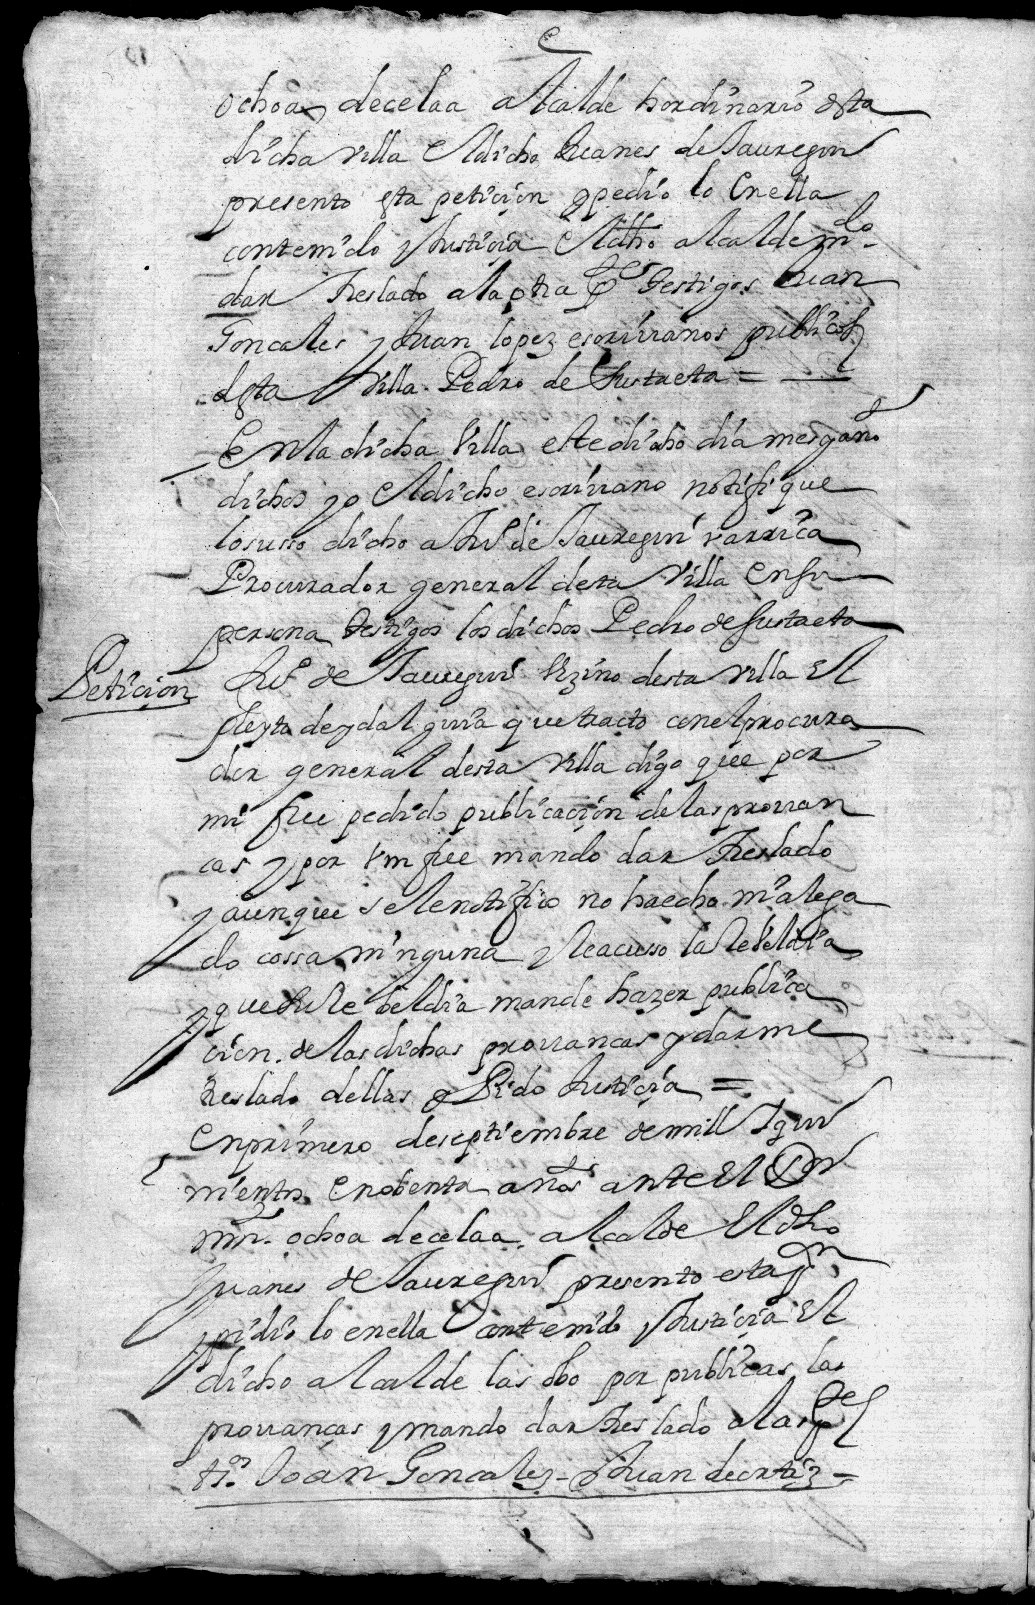 ochoa de celaa alcalde hordinario desta
dicha villa el dicho Juanes de Jauregui
presento esta peticion y pedio lo en ella
contenido y Justicia el dho alcalde mdo
dar treslado a la otra pte testigos Juan
Goncales y Juan lopez escriuanos publicos
desta villa Pedro de Sustaeta =
En la dicha villa este dicho dia mes y año
dichos yo el dicho escriuano notifique
lo suso dicho a Ju° de Jauregui varrica
Procurador general desta villa en su
persona testigos los dichos Pedro de Sustaeta
Peticion
Ju° de Jauregui vezino desta villa El
pleyto de ydalguia que tracto con el procura
dor general desta villa digo que por
mi fue pedido publicacion de las prouan
cas y por vm fue mando dar treslado
y aunque se le notifico no ha echo ni alega
do cossa ninguna y le acuso la Rebeldia
y que su Rebeldia mande hazer publica
cion de las dichas prouancas y darme
treslado dellas y Pido Justicia =
En primero de septiembre de mill y qui
nientos e nobenta años ante El
mn. ochoa de celaa alcalde El dho
Juanes de Jauregui presento esta pn
y pidio lo en ella contenido y Justicia El
dicho alcalde las obo por publicas las
prouanças y mando dar treslado a las ptes
t°s Joan Goncales y Juan de ortiz =